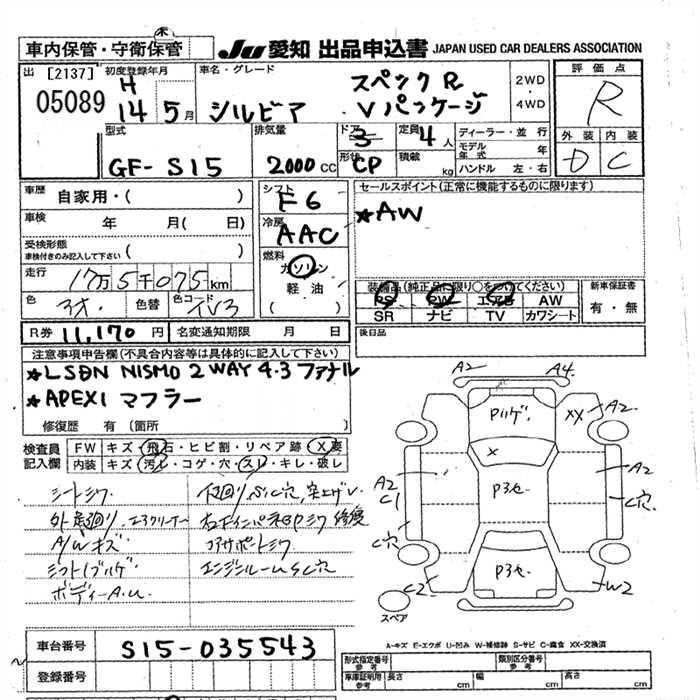 車内保管・守衛保管
JU 愛知 出品申込書 JAPAN USED CAR DEALERS ASSOCIATION
出 [2137] 初度登録年月 車名・グレード 評価点
05089 H 14 5月 シルビア スペックR Vパッケージ 2WD・4WD R
外装 内装
D C
型式 GF-S15 排気量 2000cc ドア 3 形状 CP 定員 4人 積載 kg
ディーラー・並行
モデル年式 年
ハンドル 左・右
車歴 自家用・( )
シフト F6
セールスポイント(正常に機能するものに限ります)
★AW
車検 年 月( 日)
冷房 AAC
受検形態 車検付きのみ記入して下さい ( )
燃料 ガソリン 軽油 ( )
走行 17万5千075km
色 色替 色コード TV3
装備品(純正品に限り○をつけてください) 新車保証書
PS PW エアB AW 有・無
SR ナビ TV カワシート
R券 11,170円 名変通知期限 月 日
後日品
注意事項申告欄(不具合内容等は具体的に記入して下さい)
★LSDN NISMO 2WAY 4.3 ファナル
★APEXI マフラー
修復歴 有(箇所
検査員記入欄 FW キズ・飛石・ヒビ割・リペア跡・X要
内装 キズ・汚レ・コゲ・穴・スレ・キレ・破レ
シートシワ
A/Wキズ
コアサポートシワ
エンジンルームSC穴
A2 A4
XX A2
A2 C1
A2
C穴
C穴
X
C2 W2
スペア
A-キズ E-エクボ U-凹み W-補修跡 S-サビ C-腐食 XX-交換済
車台番号 S15-035543
登録番号
形式指定番号 参考 類別区分番号 参考
車庫証明用 参考 長さ cm 幅 cm 高さ cm